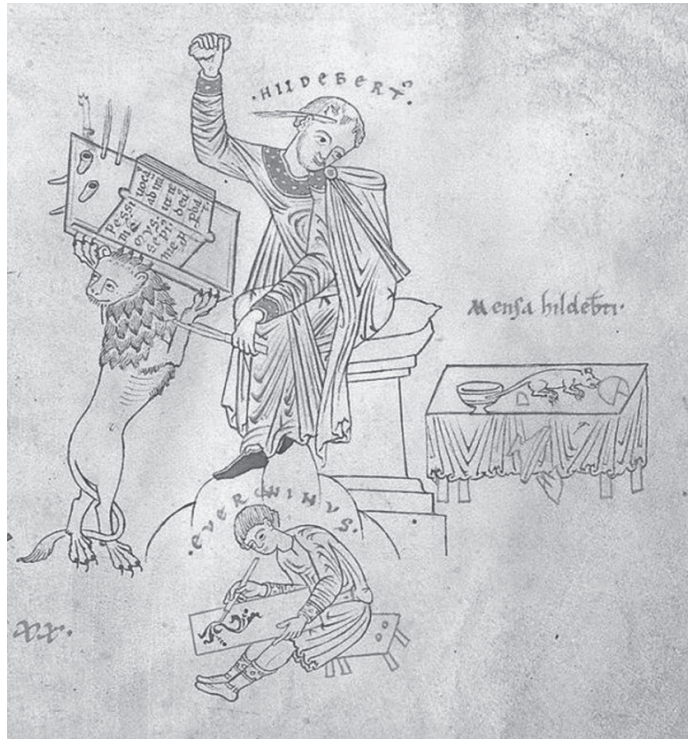 ·HILDEBERT⁹·
Pessi
me
mys.
sepi⁹
me ꝓ
uocas
ad irā
ut te
deus
ꝑdat
Mensa hildeb̄ti·
·EVERWINVS·